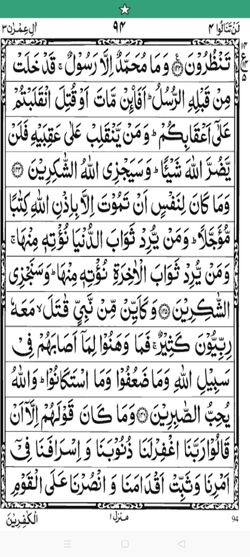 لَنْ تَنَالُوا ۴ ۹۴ اٰلِ عِمْرٰن ۳
تَنْظُرُوْنَ ۝۱۴۳ وَمَا مُحَمَّدٌ اِلَّا رَسُوْلٌ ۚ قَدْ خَلَتْ
مِنْ قَبْلِهِ الرُّسُلُ ؕ اَفَا۟ئِنْ مَّاتَ اَوْ قُتِلَ انْقَلَبْتُمْ
عَلٰٓى اَعْقَابِكُمْ ؕ وَمَنْ يَّنْقَلِبْ عَلٰى عَقِبَيْهِ فَلَنْ
يَّضُرَّ اللّٰهَ شَيْـًٔا ؕ وَسَيَجْزِى اللّٰهُ الشّٰكِرِيْنَ ۝۱۴۴
وَمَا كَانَ لِنَفْسٍ اَنْ تَمُوْتَ اِلَّا بِاِذْنِ اللّٰهِ كِتٰبًا
مُّؤَجَّلًا ؕ وَمَنْ يُّرِدْ ثَوَابَ الدُّنْيَا نُؤْتِهٖ مِنْهَا ۚ
وَمَنْ يُّرِدْ ثَوَابَ الْاٰخِرَةِ نُؤْتِهٖ مِنْهَا ؕ وَسَنَجْزِى
الشّٰكِرِيْنَ ۝۱۴۵ وَكَاَيِّنْ مِّنْ نَّبِىٍّ قٰتَلَ ۙ مَعَهٗ
رِبِّيُّوْنَ كَثِيْرٌ ۚ فَمَا وَهَنُوْا لِمَآ اَصَابَهُمْ فِىْ
سَبِيْلِ اللّٰهِ وَمَا ضَعُفُوْا وَمَا اسْتَكَانُوْا ؕ وَاللّٰهُ
يُحِبُّ الصّٰبِرِيْنَ ۝۱۴۶ وَمَا كَانَ قَوْلَهُمْ اِلَّآ اَنْ
قَالُوْا رَبَّنَا اغْفِرْ لَنَا ذُنُوْبَنَا وَاِسْرَافَنَا فِىْٓ
اَمْرِنَا وَثَبِّتْ اَقْدَامَنَا وَانْصُرْنَا عَلَى الْقَوْمِ
94 منزل ۱ الْكٰفِرِيْنَ